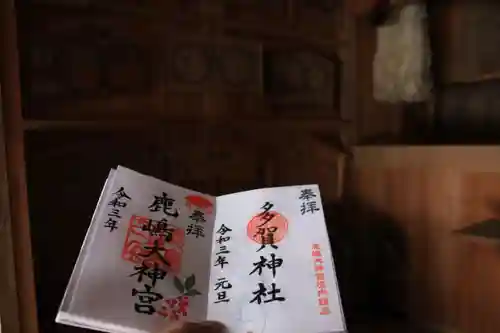 奉拝
多賀神社
令和三年 元旦
奉拝
鹿嶋大神宮
令和三年